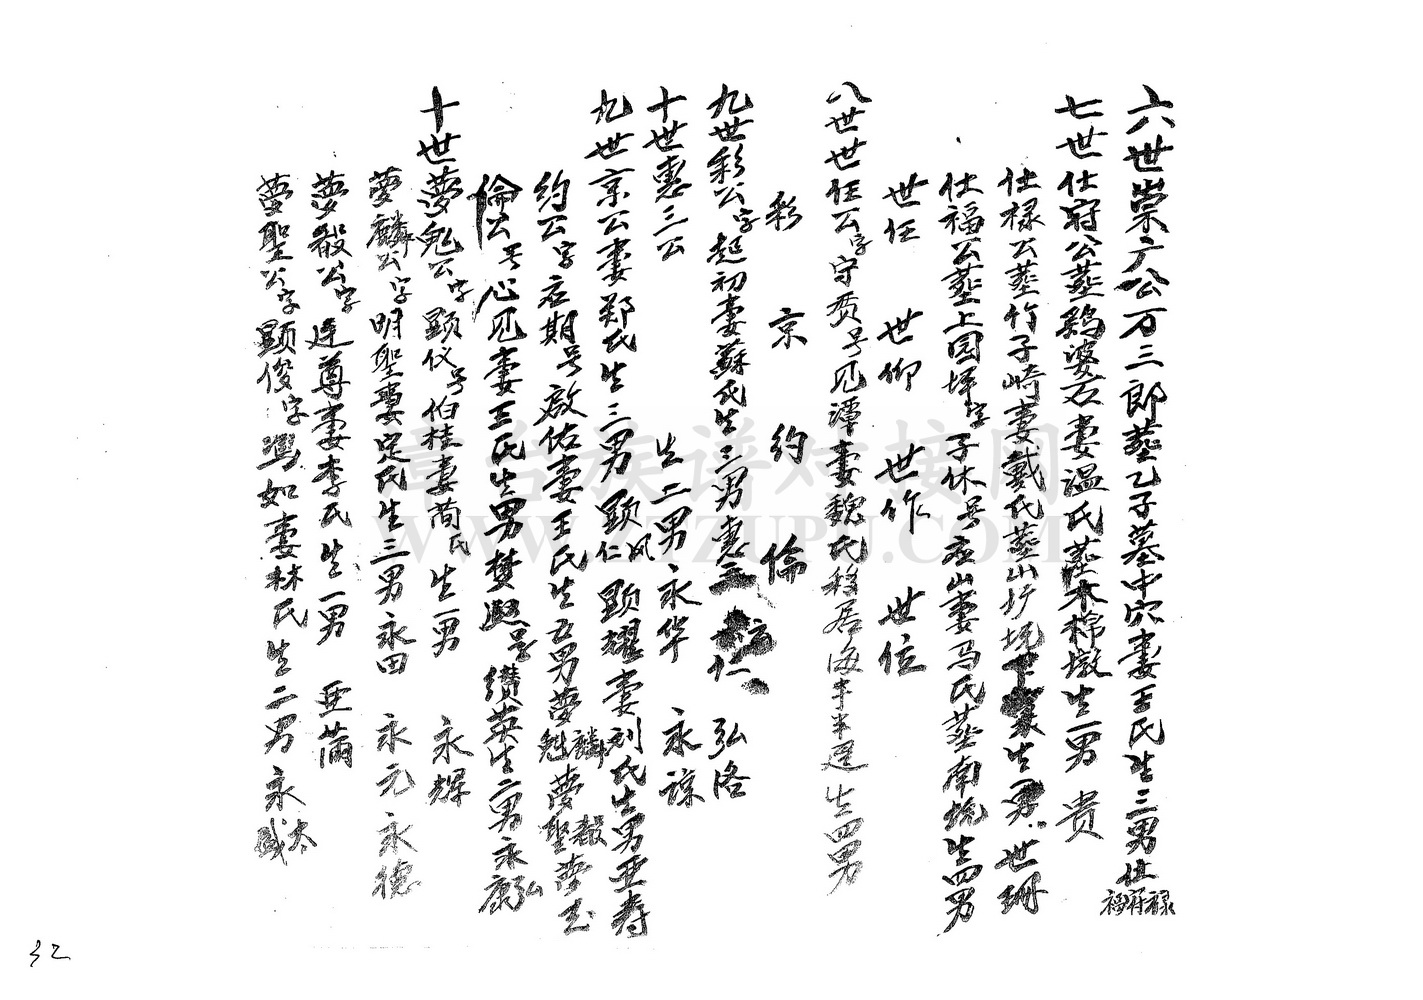 六世崇广公万三郎葬乙子墓中穴妻王氏生三男仕禄府福
七世仕府公葬鷄婆石妻温氏葬木棉墩生一男 贵
仕禄公葬竹子崎妻戴氏葬山圹坑生一男 世珊
仕福公葬上园坪字子休号应山妻马氏葬南坑生四男
世任 世仰 世作 世位
八世世任公字守贲号见潭妻魏氏移居海丰半迳生四男
彩 京 约 倫
九世彩公字起初妻蘇氏生三男惠三 仁 弘洛
十世惠三公 生二男永华 永諒
九世京公妻郑氏生三男 顕仁凤 顕耀妻刘氏生男亜寿
约公字君期号啟佑妻王氏生五男夢魁麟夢聖毅夢玉
倫公号心见妻王氏生男梦熙号缵英生二男永康弘
十世夢魁公字顕仪号伯桂妻蔄氏 生一男 永輝
夢麟公字明聖妻定氏生三男永田 永元 永德
夢毅公字连尊妻李氏生一男 亜蒲
夢聖公字顕俊字鸿如妻林氏生二男永盛泰
章台族谱对接网
WWW.ZTZUPU.COM
32